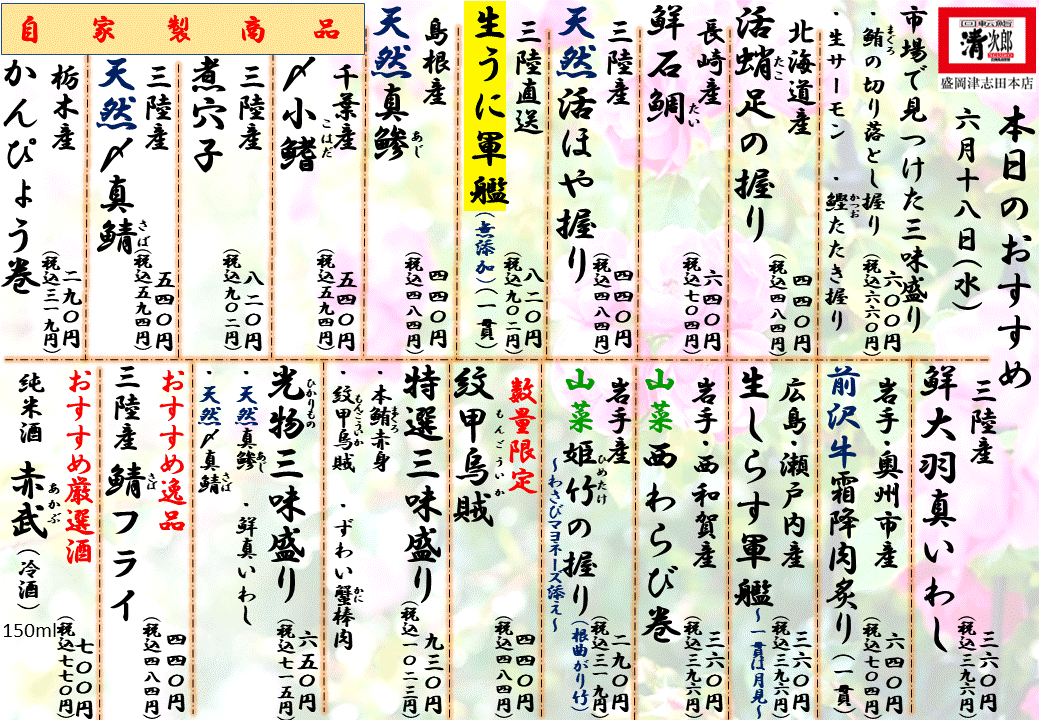 回転鮨
清次郎
盛岡津志田本店
本日のおすすめ
六月十八日(水)
市場で見つけた三味盛り
・鮪の切り落とし握り
まぐろ
六〇〇円
(税込六六〇円)
・生サーモン ・鰹たたき握り
かつお
北海道産
活蛸足の握り
たこ
四四〇円
(税込四八四円)
長崎産
鮮石鯛
たい
六四〇円
(税込七〇四円)
三陸産
天然活ほや握り
四四〇円
(税込四八四円)
三陸直送
生うに軍艦
(無添加)(一貫)
八二〇円
(税込九〇二円)
島根産
天然真鯵
あじ
四四〇円
(税込四八四円)
自家製商品
千葉産
〆小鰭
こはだ
五四〇円
(税込五九四円)
三陸産
煮穴子
八二〇円
(税込九〇二円)
三陸産
天然〆真鯖
さば
五四〇円
(税込五九四円)
栃木産
かんぴょう巻
二九〇円
(税込三一九円)
三陸産
鮮大羽真いわし
三六〇円
(税込三九六円)
岩手・奥州市産
前沢牛霜降肉炙り(一貫)
六四〇円
(税込七〇四円)
広島・瀬戸内産
生しらす軍艦
~一貫は月見~
三六〇円
(税込三九六円)
岩手・西和賀産
山菜西わらび巻
三六〇円
(税込三九六円)
岩手産
山菜姫竹の握り
ひめたけ
(根曲がり竹)
~わさびマヨネーズ添え~
二九〇円
(税込三一九円)
数量限定
紋甲烏賊
もんごういか
四四〇円
(税込四八四円)
特選三味盛り
・本鮪赤身
まぐろ
・紋甲烏賊
もんごういか
・ずわい蟹棒肉
かに
九三〇円
(税込一〇二三円)
光物三味盛り
ひかりもの
・天然真鯵
あじ
・鮮真いわし
・天然〆真鯖
さば
六五〇円
(税込七一五円)
おすすめ逸品
三陸産鯖フライ
さば
四四〇円
(税込四八四円)
おすすめ厳選酒
純米酒 赤武(冷酒)
あかぶ
150ml
七〇〇円
(税込七七〇円)